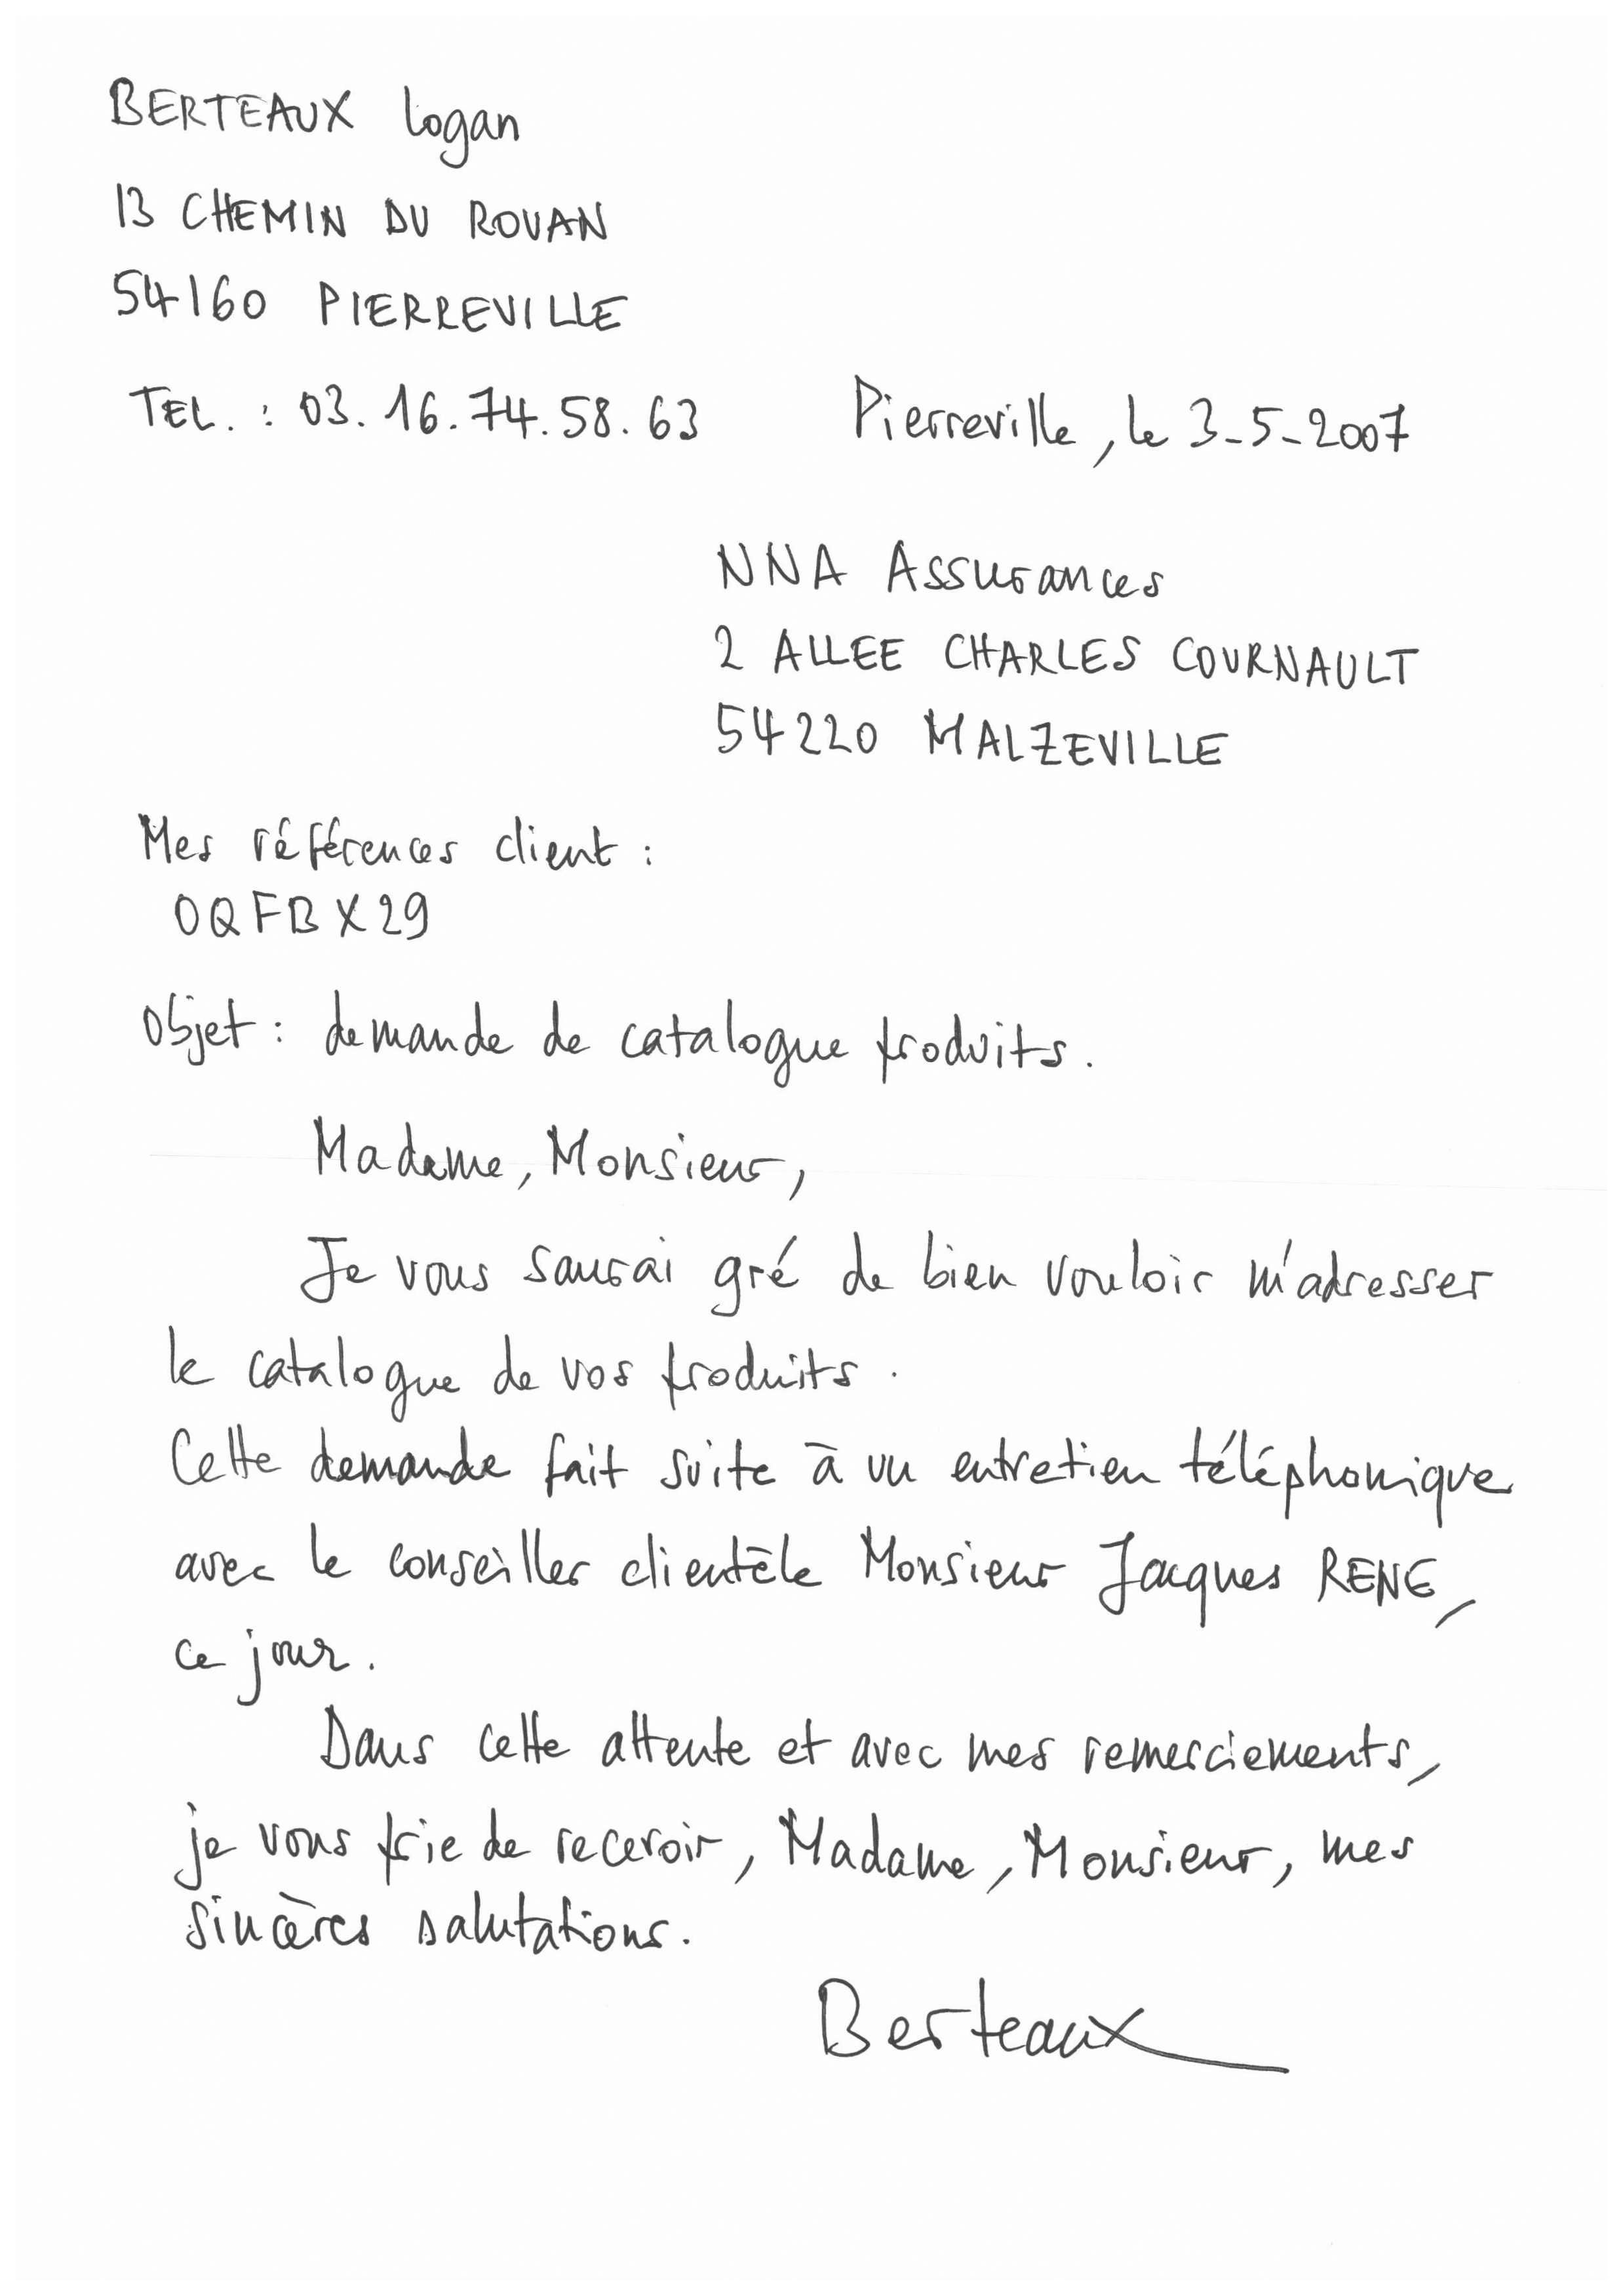 BERTEAUX Logan
13 CHEMIN DU ROUAN
54160 PIERREVILLE
TEL. : 03.16.74.58.63
Pierreville, le 3-5-2007
NNA Assurances
2 ALLEE CHARLES COURNAULT
54220 MALZEVILLE
Mes références client :
OQFBX29
Objet : demande de catalogue produits.
Madame, Monsieur,
Je vous saurai gré de bien vouloir m'adresser
le catalogue de vos produits.
Cette demande fait suite à un entretien téléphonique
avec le conseiller clientèle Monsieur Jacques RENE,
ce jour.
Dans cette attente et avec mes remerciements,
je vous prie de recevoir, Madame, Monsieur, mes
sincères salutations.
Berteaux